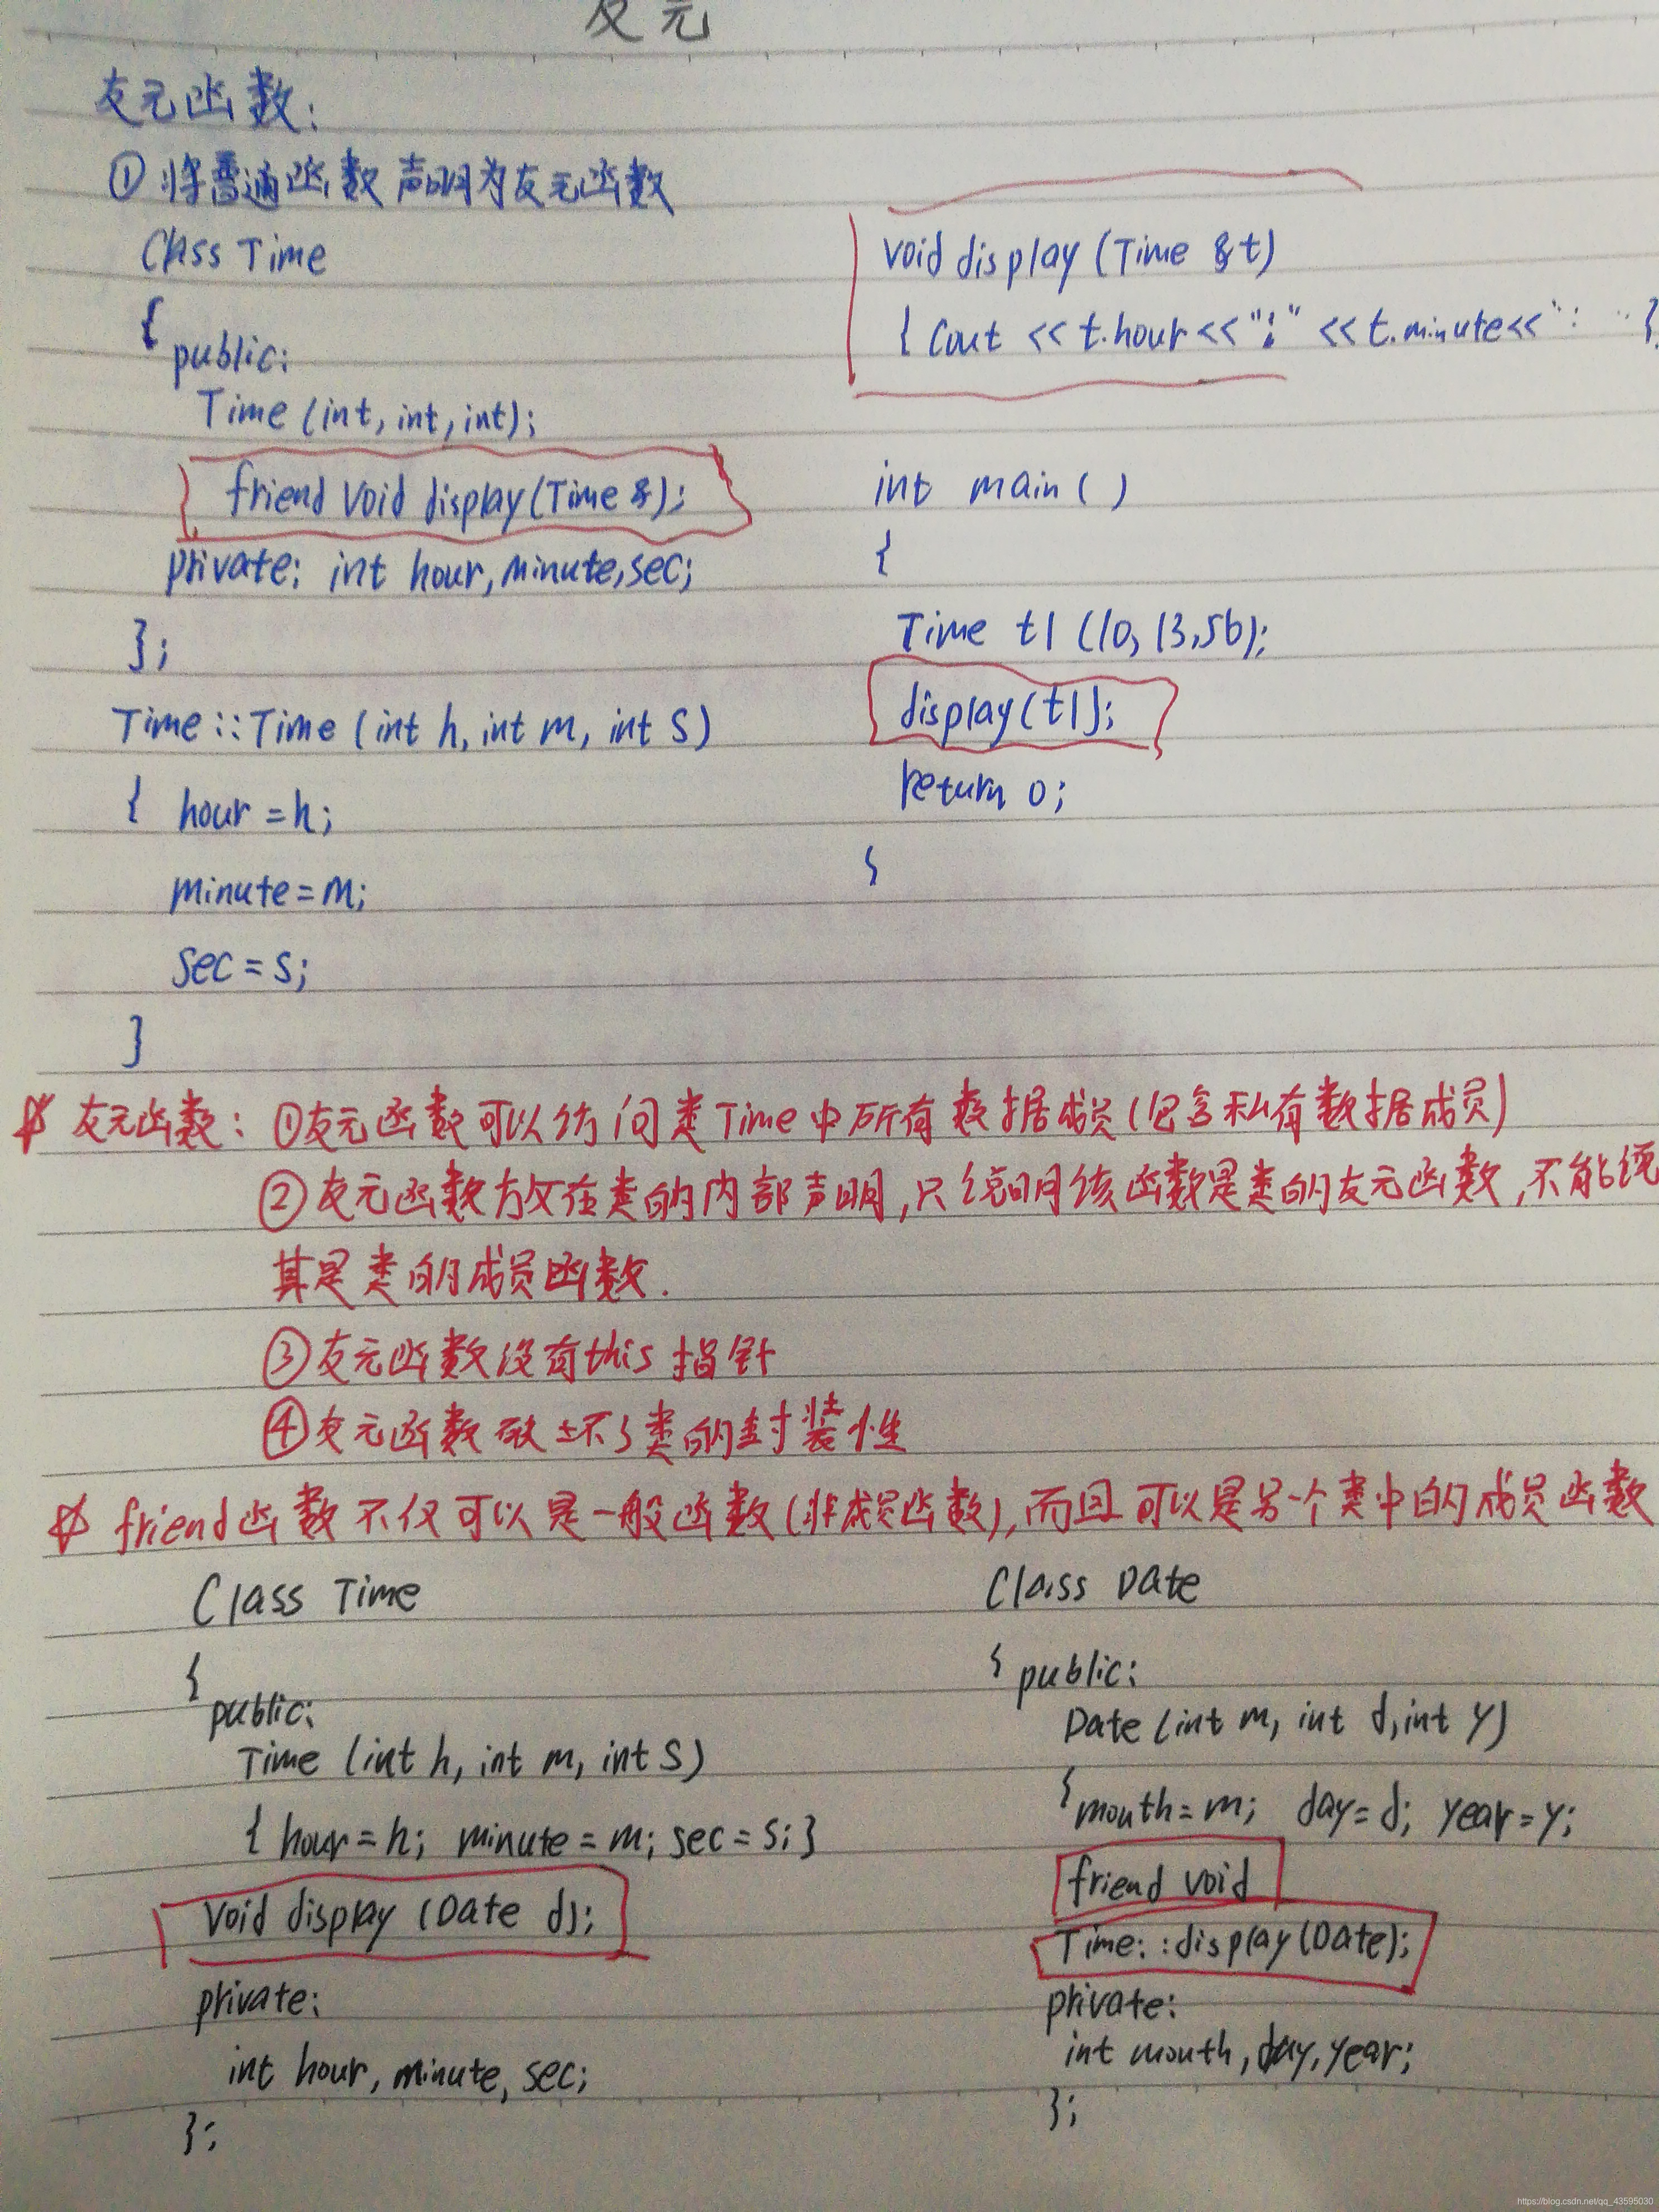 友元
友元函数:
① 将普通函数声明为友元函数
Class Time
{
public:
Time (int, int, int);
friend void display(Time &);
private: int hour, minute, sec;
};
Time :: Time (int h, int m, int s)
{ hour = h;
minute = m;
sec = s;
}
void display (Time &t)
{ cout << t.hour << ":" << t.minute << ":
}
int main ( )
{
Time t1 (10, 13, 56);
display(t1);
return 0;
}
友元函数: ①友元函数可以访问类Time中所有数据成员(包含私有数据成员)
②友元函数放在类的内部声明,只说明该函数是类的友元函数,不能说
其是类的成员函数.
③友元函数没有this指针
④友元函数破坏了类的封装性
friend函数不仅可以是一般函数(非成员函数),而且可以是另一个类中的成员函数
Class Time
{
public:
Time (int h, int m, int s)
{ hour = h; minute = m; sec = s; }
void display (Date d);
private:
int hour, minute, sec;
};
Class Date
{ public:
Date (int m, int d, int y)
{ mouth = m; day = d; year = y;
friend void
Time: :display(Date);
private:
int mouth, day, year;
};
https://blog.csdn.net/qq_43595030